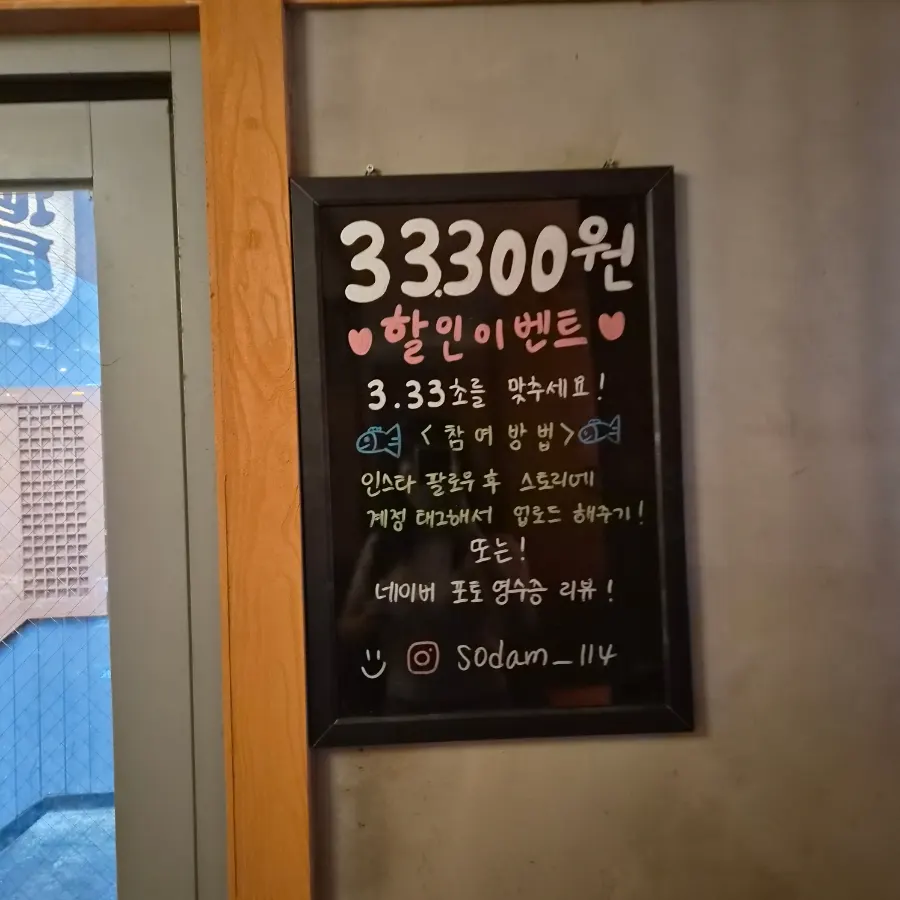 33.300원
할인이벤트
3.33초를 맞추세요!
<참여방법>
인스타 팔로우 후 스토리에
계정 태그해서 업로드 해주기!
또는!
네이버 포토 영수증 리뷰!
sodam_114